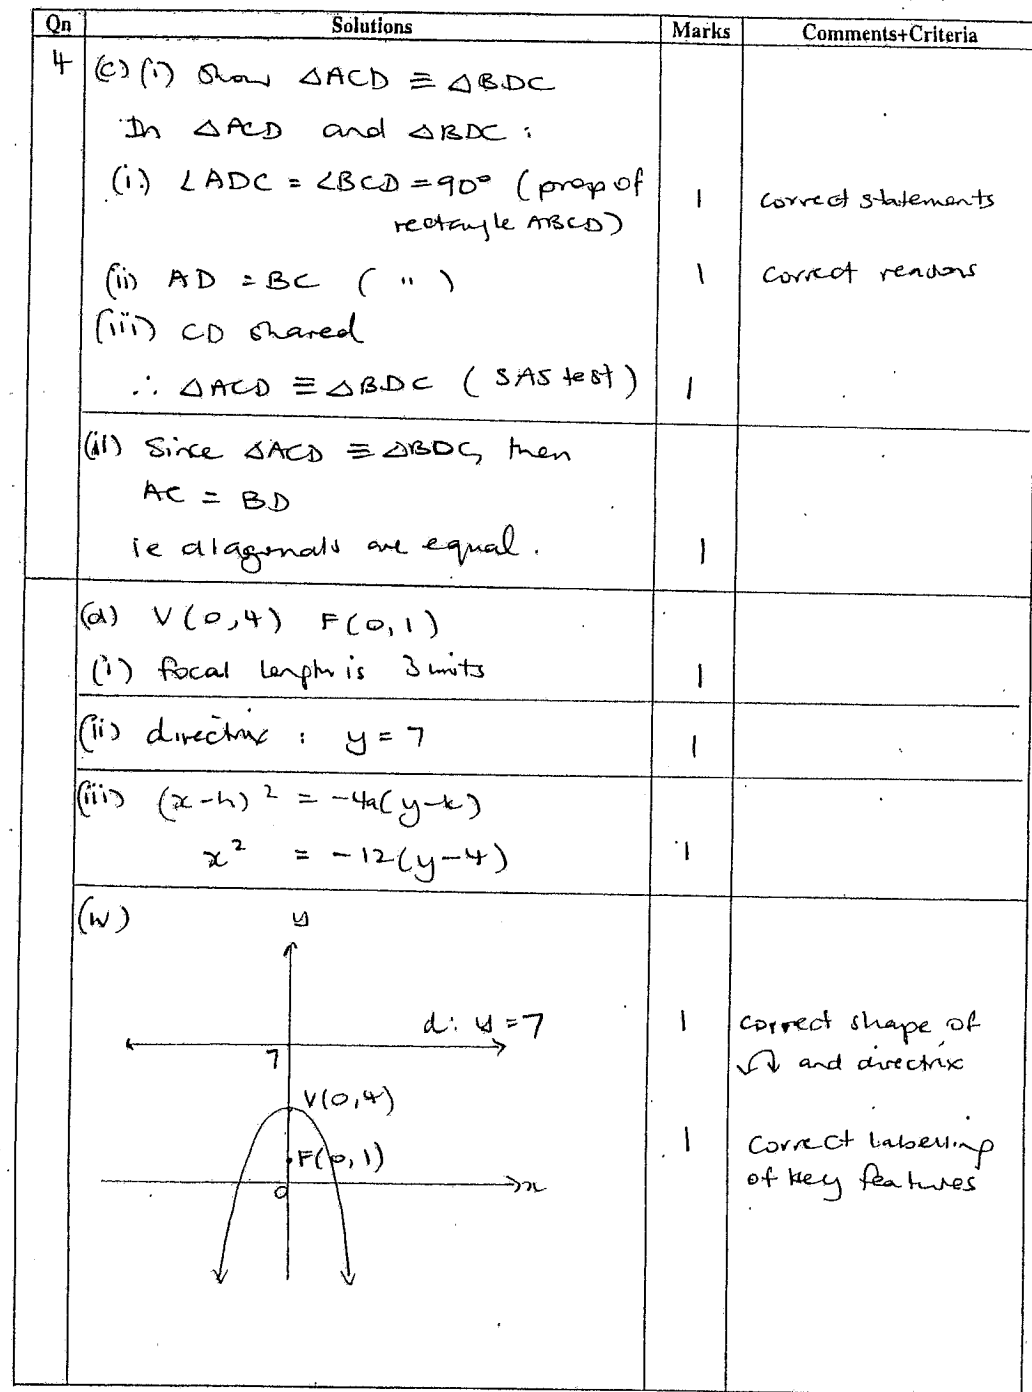 Qn Solutions Marks Comments+Criteria
4 (c) (i) Show △ACD ≡ △BDC
In △ACD and △BDC :
(i) ∠ADC = ∠BCD = 90° (prop of
rectangle ABCD) 1 correct statements
(ii) AD = BC ( " ) 1 correct reasons
(iii) CD shared
∴ △ACD ≡ △BDC (SAS test) 1
(ii) Since △ACD ≡ △BDC, then
AC = BD
ie diagonals are equal. 1
(d) V(0,4) F(0,1)
(i) focal length is 3 units 1
(ii) directrix : y = 7 1
(iii) (x-h)² = -4a(y-k)
x² = -12(y-4) 1
(iv)
y
d: y = 7 1 correct shape of
7 and directrix
V(0,4)
1 correct labelling
F(0,1) of key features
0 x